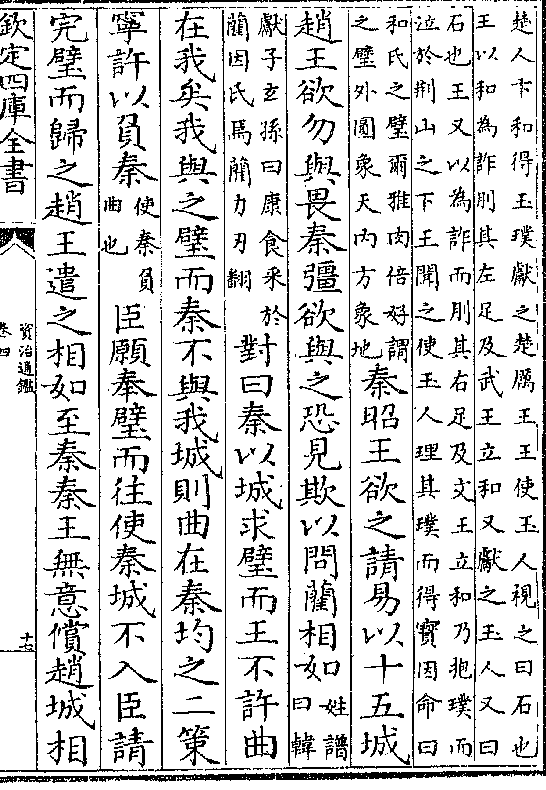 楚人卞和得玉璞獻之楚厲王王使玉人視之曰石也
王以和為詐刖其左足及武王立和又獻之玉人又曰
石也王又以為詐而刖其右足及文王立和乃抱璞而
泣於荆山之下王聞之使玉人理其璞而得寳因命曰
和氏之璧爾雅肉倍好謂
之璧外圎象天内方象地
秦昭王欲之請易以十五城
趙王欲勿與畏秦彊欲與之恐見欺以問藺相如
姓譜
曰韓
獻子玄孫曰康食采於
藺因氏焉藺力刃翻
對曰秦以城求璧而王不許曲
在我矣我與之璧而秦不與我城則曲在秦均之二策
寧許以負秦
使秦負
曲也
臣願奉璧而往使秦城不入臣請
完璧而歸之趙王遣之相如至秦秦王無意償趙城相
欽定四庫全書
資治通鑑
卷四
十七